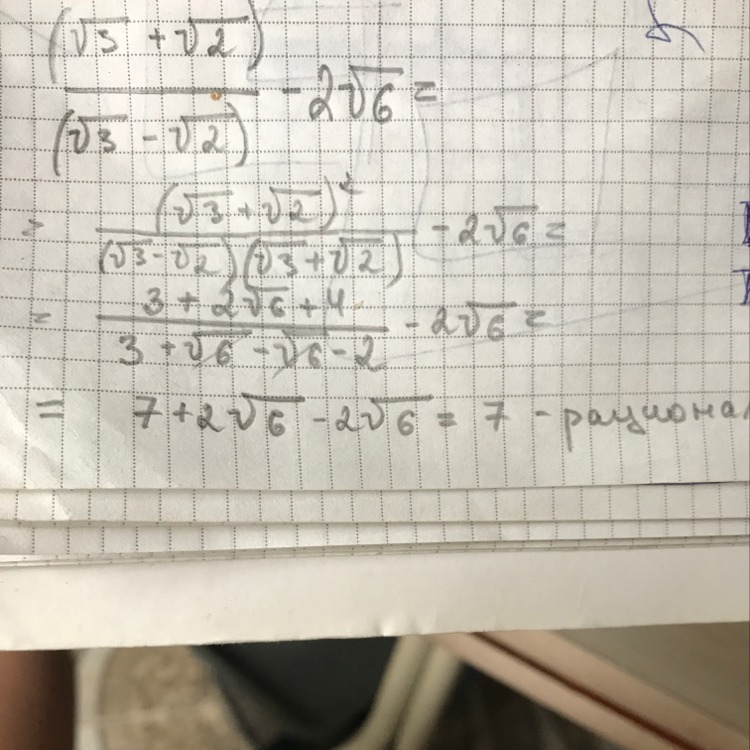 (√3 + √2)
/ (√3 - √2) - 2√6 =
= (√3 + √2)² / (√3 - √2)(√3 + √2) - 2√6 =
= 3 + 2√6 + 4 / 3 + √6 - √6 - 2 - 2√6 =
= 7 + 2√6 - 2√6 = 7 - рациона